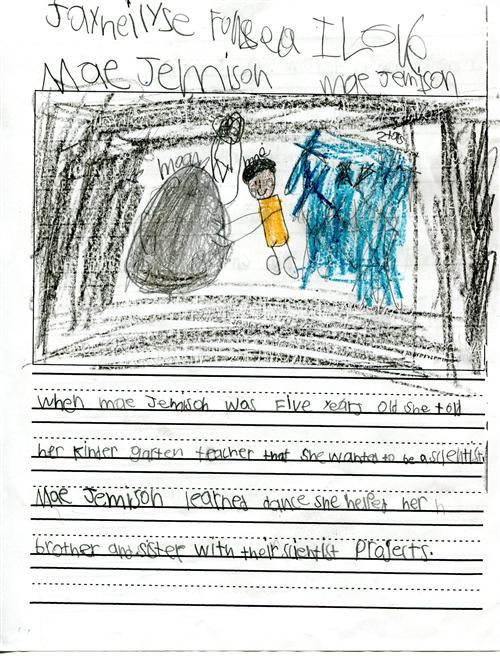 Jaxneilyse Fonsea I Love
Mae Jemison mae Jemison
moon mae Star
When mae Jemison was Five years old she told
her kinder garten teacher that she wanted to be a scientist.
Mae Jemison learned dance she helped her h
brother and sister with their scientist Projects.